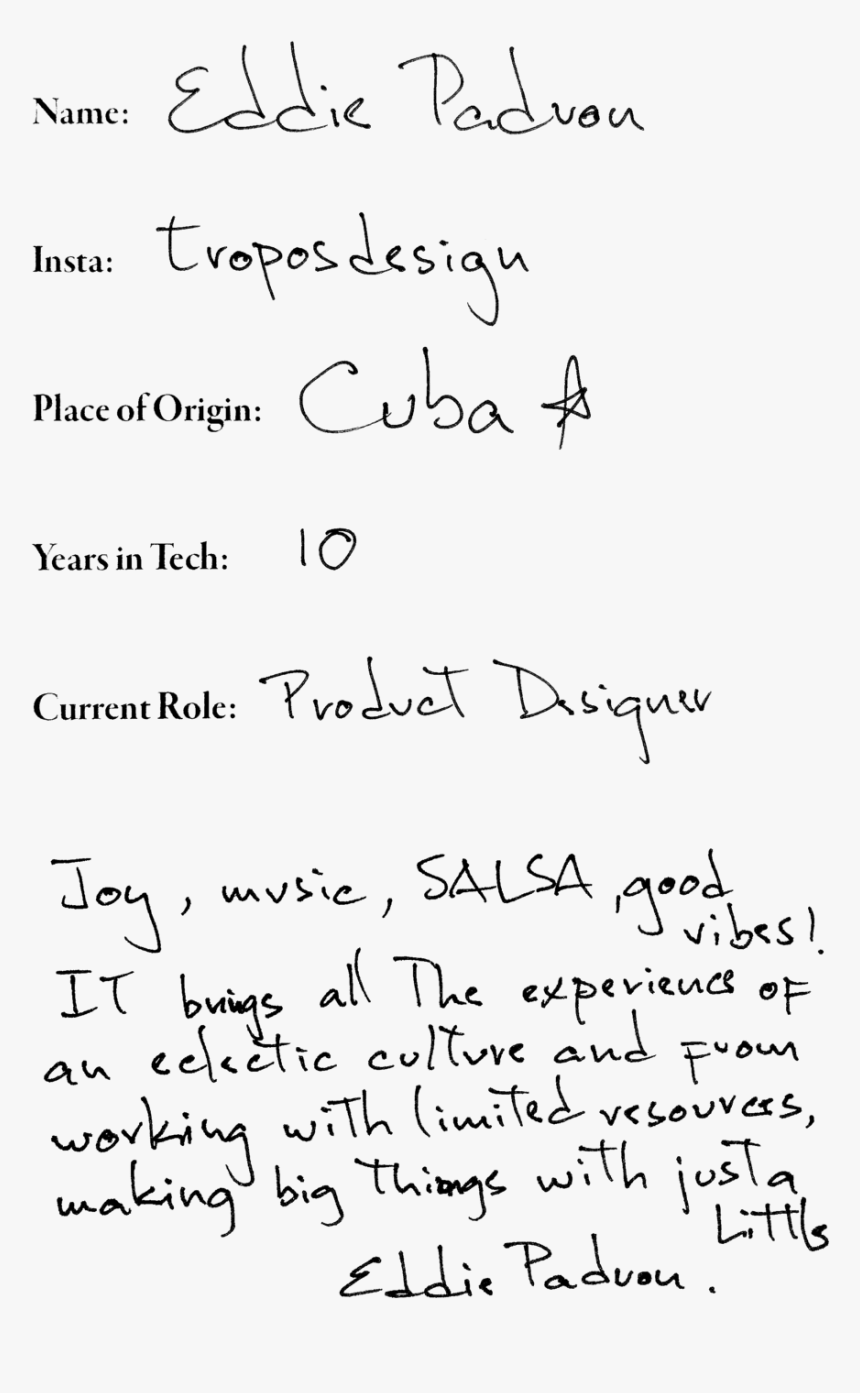 Name: Eddie Padron
Insta: troposdesign
Place of Origin: Cuba
Years in Tech: 10
Current Role: Product Designer
Joy, music, SALSA, good
vibes!
IT brings all The experience OF
an eclectic culture and From
working with limited resources,
making big things with just a
Little
Eddie Padron.